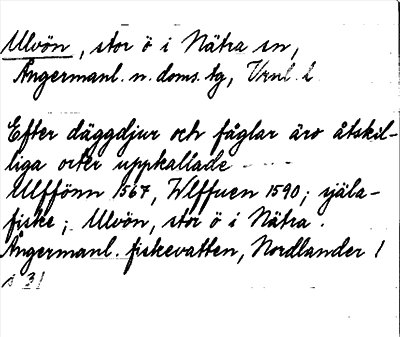 Ulvön, stor ö i Nätra sn,
Ångermanl. n. doms. tg, Vrnl. l.
Efter däggdjur och fåglar äro åtskil-
liga orter uppkallade - - - -
Ulffönn 1567, Wlffuen 1590; själa-
fiske; Ulvön, stor ö i Nätra.
Ångermanl. fiskevatten, Nordlander 1
s 31